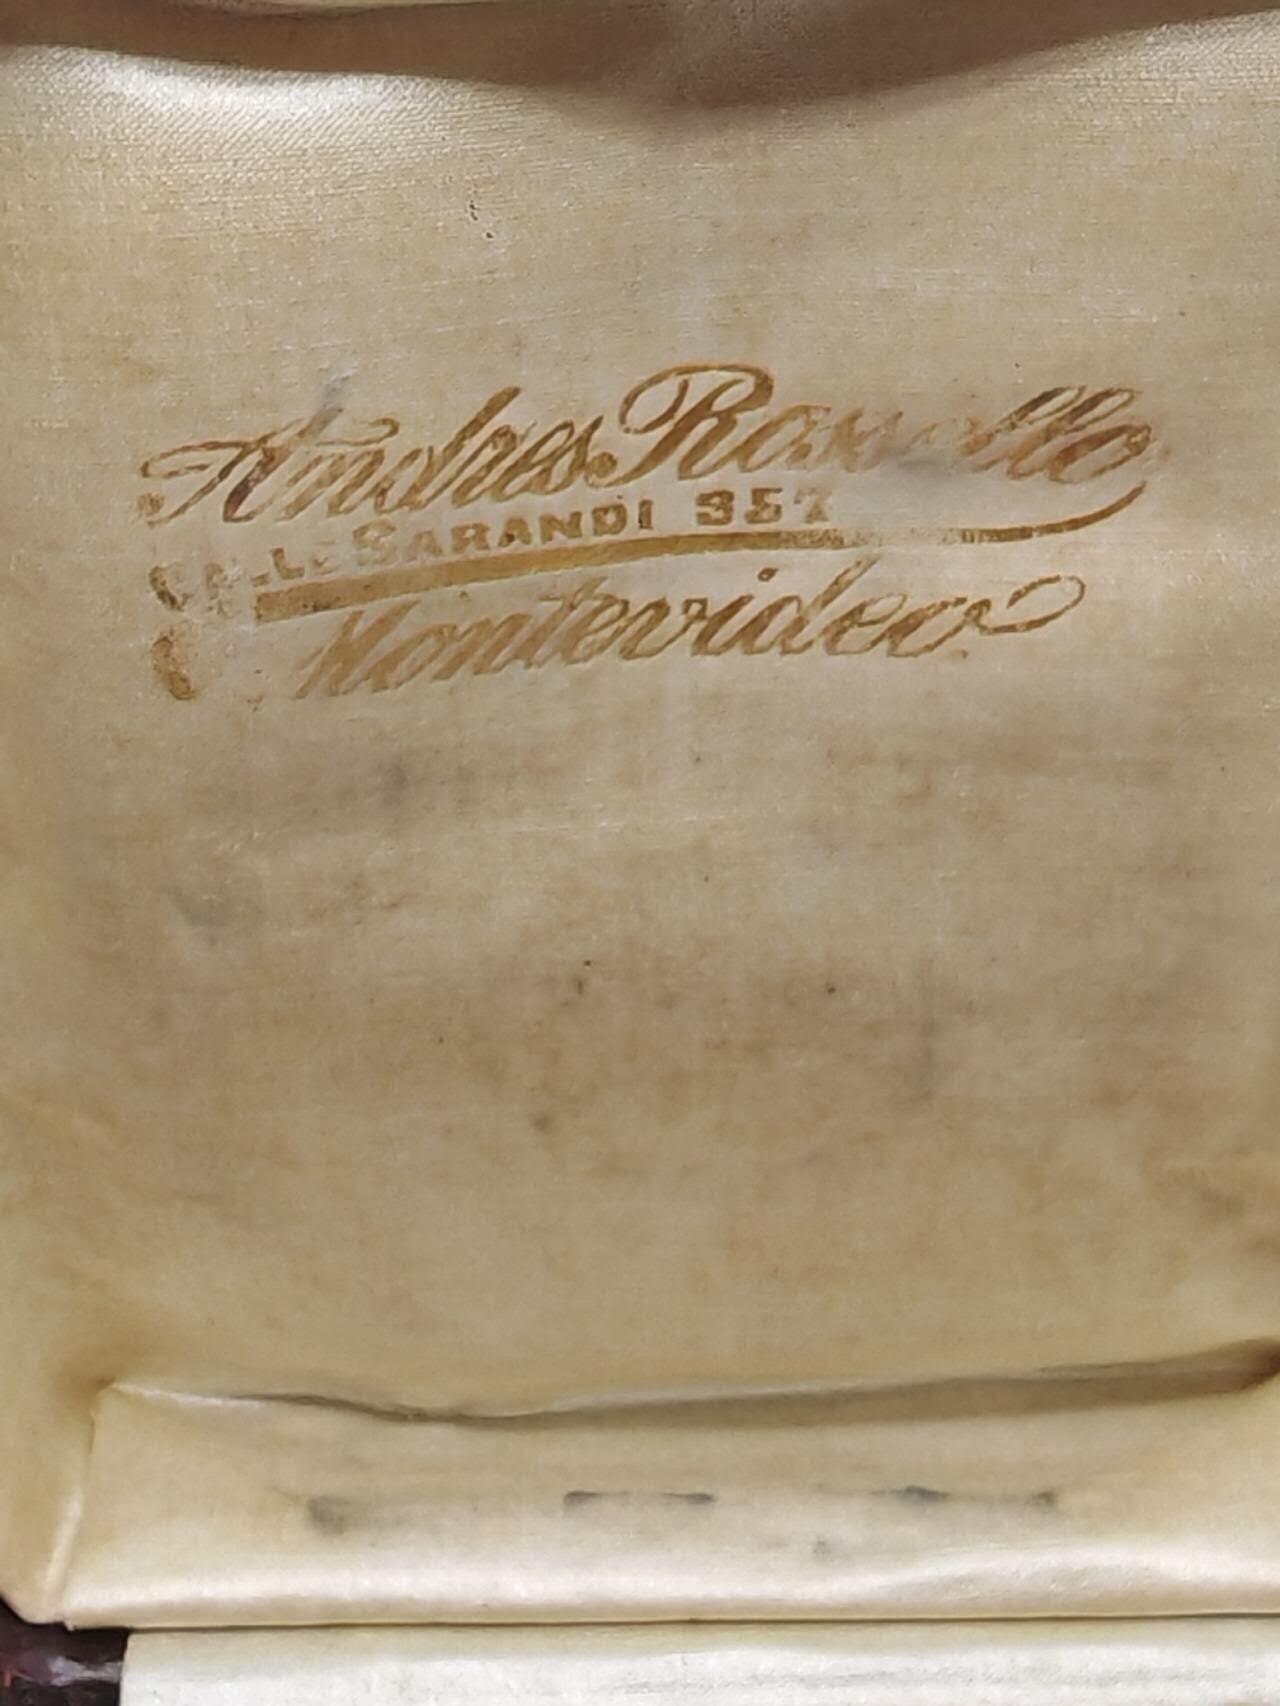 Andres
CALLE SARANDI 357
Montevideo